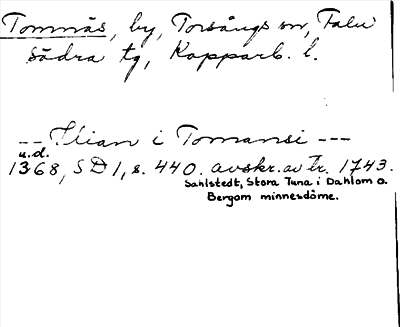 Tomnäs, by, Torsångs sn, Falu
södra tg, Kopparb. l.
-- Ilian i Tomansi ---
u.d.
1368, SD 1, s. 440. avskr. av tr. 1743.
Sahlstedt, Stora Tuna i Dahlom o.
Bergom minnesdöme.